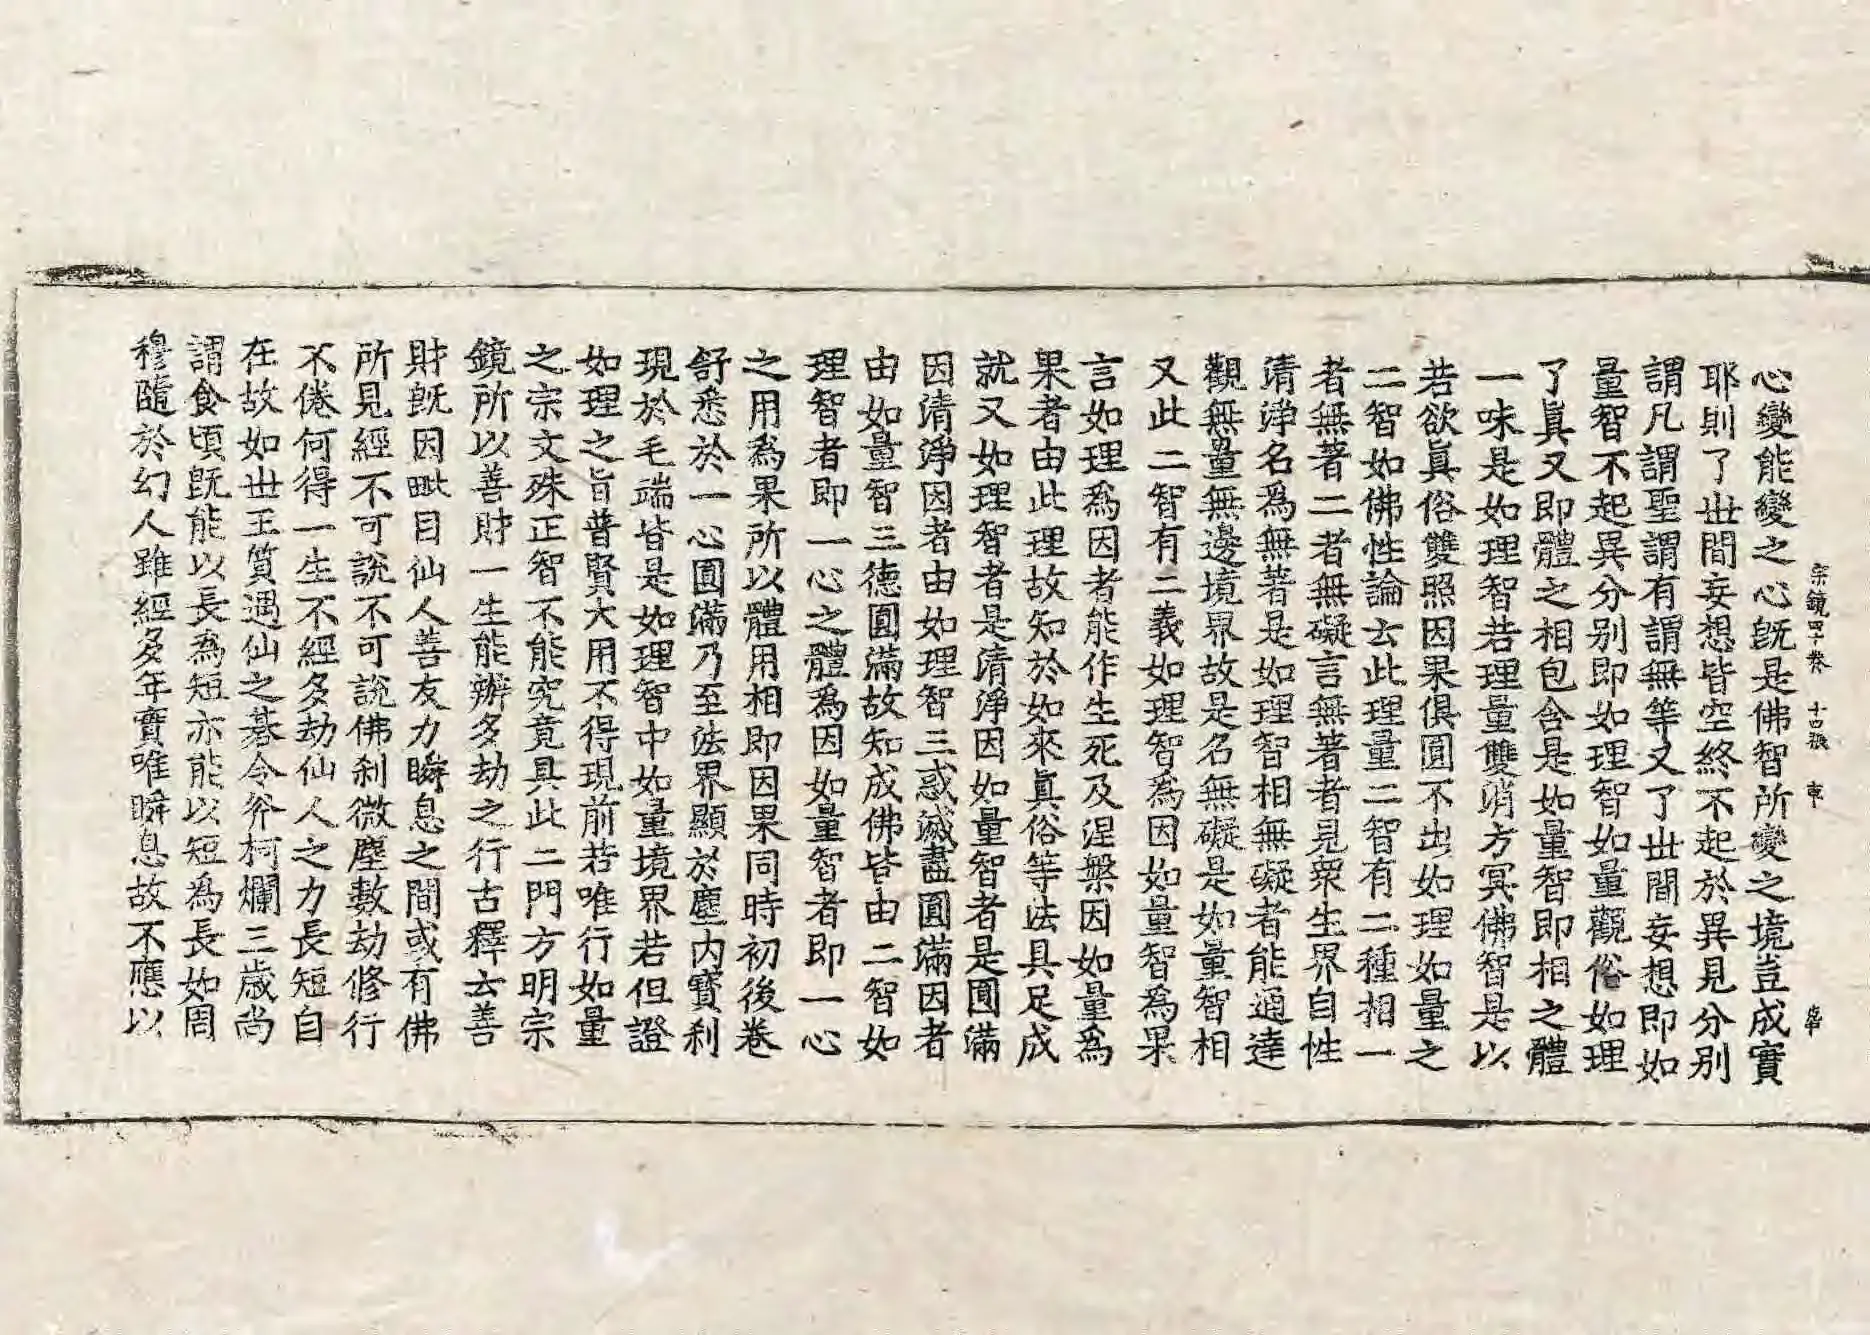 宗鏡四十卷 十四張 車
心變能變之心旣是佛智所變之境豈成實
耶則了世間妄想皆空終不起於異見分別
謂凡謂聖謂有謂無等又了世間妄想即如
量智不起異分別即如理智如量觀俗如理
了眞又即體之相包含是如量智即相之體
一味是如理智若理量雙消方冥佛智是以
若欲眞俗雙照因果俱圓不出如理如量之
二智如佛性論去此理量二智有二種相一
者無著二者無礙言無著者見衆生界自性
清淨名爲無著是如理智相無礙者能通達
觀無量無邊境界故是名無礙是如量智相
又此二智有二義如理智爲因如量智爲果
言如理爲因者能作生死及涅槃因如量爲
果者由此理故知於如來眞俗等法具足成
就又如理智者是清淨因如量智者是圓滿
因清淨因者由如理智三惑滅盡圓滿因者
由如量智三德圓滿故知成佛皆由二智如
理智者即一心之體爲因如量智者即一心
之用爲果所以體用相即因果同時初後卷
舒悉於一心圓滿乃至法界顯於塵內寶刹
現於毛端皆是如理智中如量境界若但證
如理之旨普賢大用不得現前若唯行如量
之宗文殊正智不能究竟具此二門方明宗
鏡所以善財一生能辦多劫之行古釋去善
財旣因毗目仙人善友力瞬息之間或有佛
所見經不可說不可說佛刹微塵數劫修行
不倦何得一生不經多劫仙人之力長短自
在故如世王質遇仙之碁令斧柯爛三歲尚
謂食頃旣能以長爲短亦能以短爲長如周
穆隨於幻人雖經多年實唯瞬息故不應以